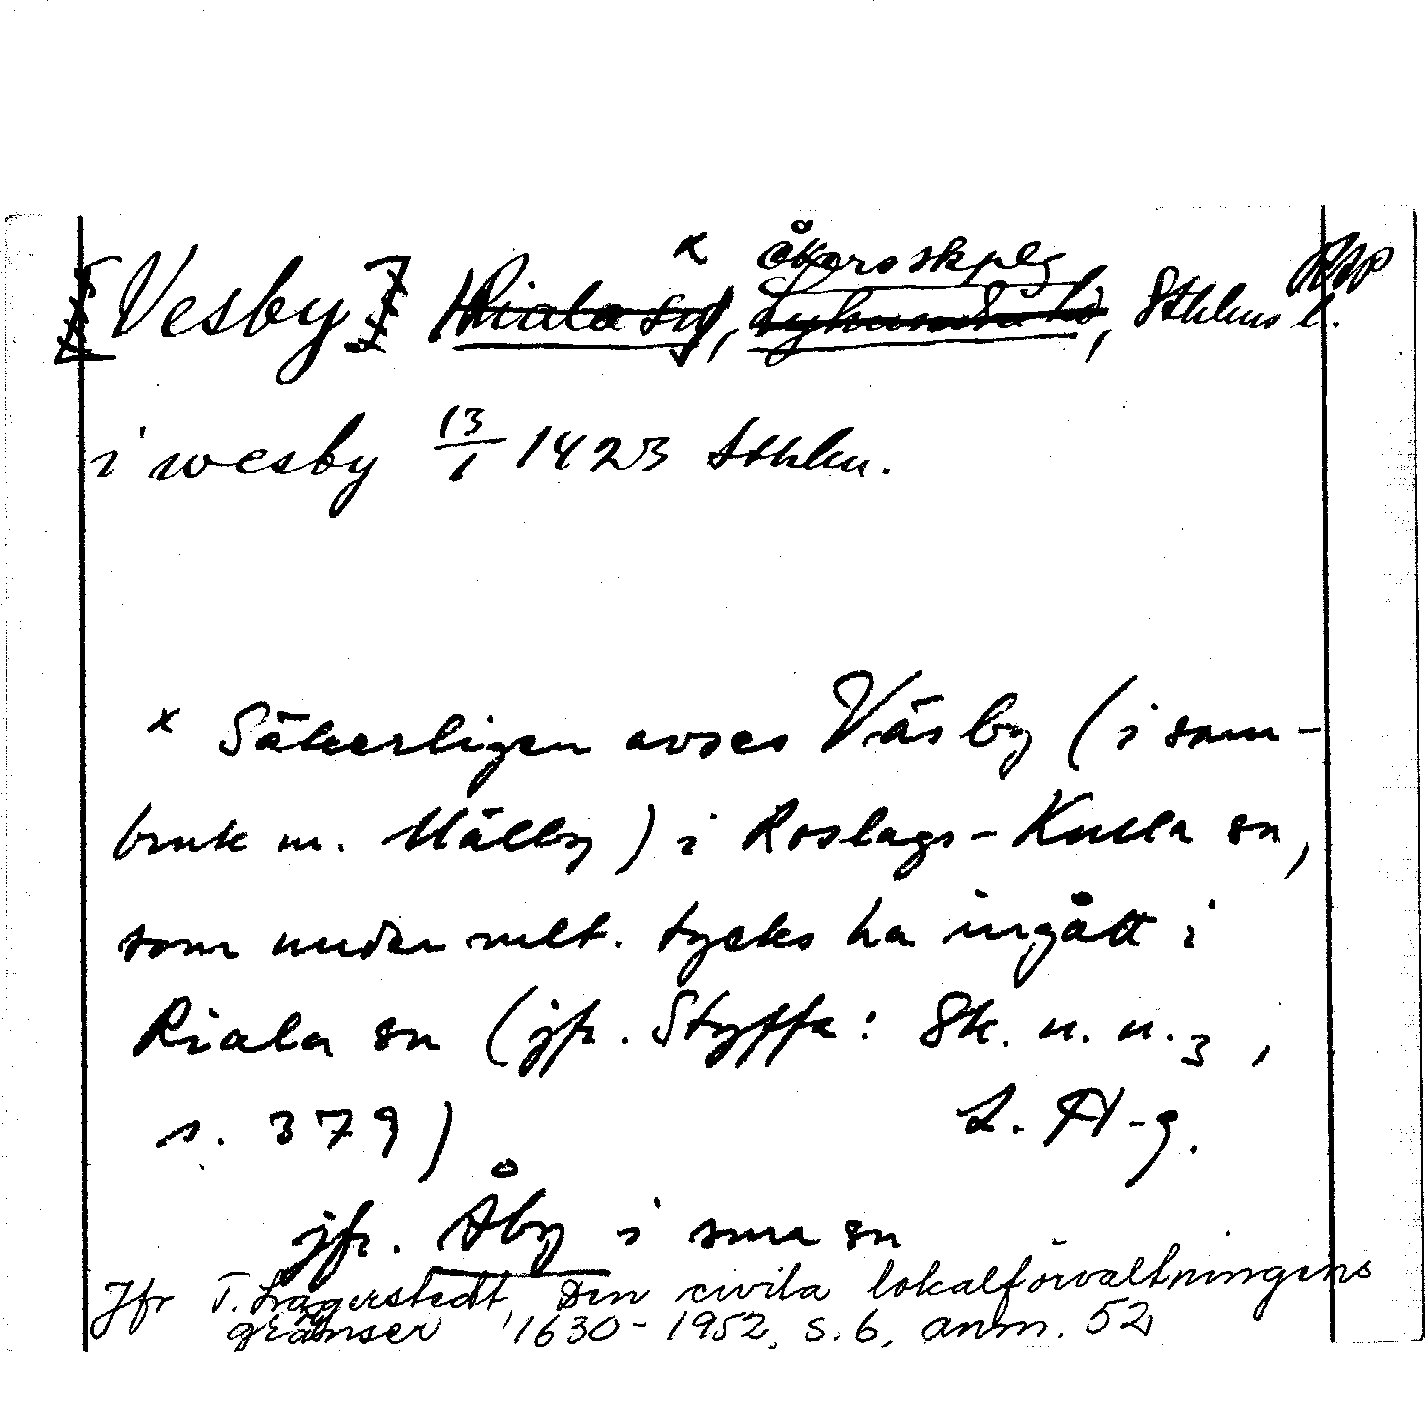 x åkers skplg
[Vesby] Riala sn, Lyhundra hd, Sthlms l.
i wesby 13/1 1423 Sthlm.
x Säkerligen avses Väsby (i sam-
bruk m. Mälby) i Roslags-Kulla sn,
som under mlt. tycks ha ingått i
Riala sn (jfr. Styffe: Sk. u. u. 3,
s. 379) L. H-g.
jfr. Åby i sma sn
Jfr T. Lagerstedt, Den civila lokalförvaltningens
gränser 1630-1952, s. 6, anm. 52